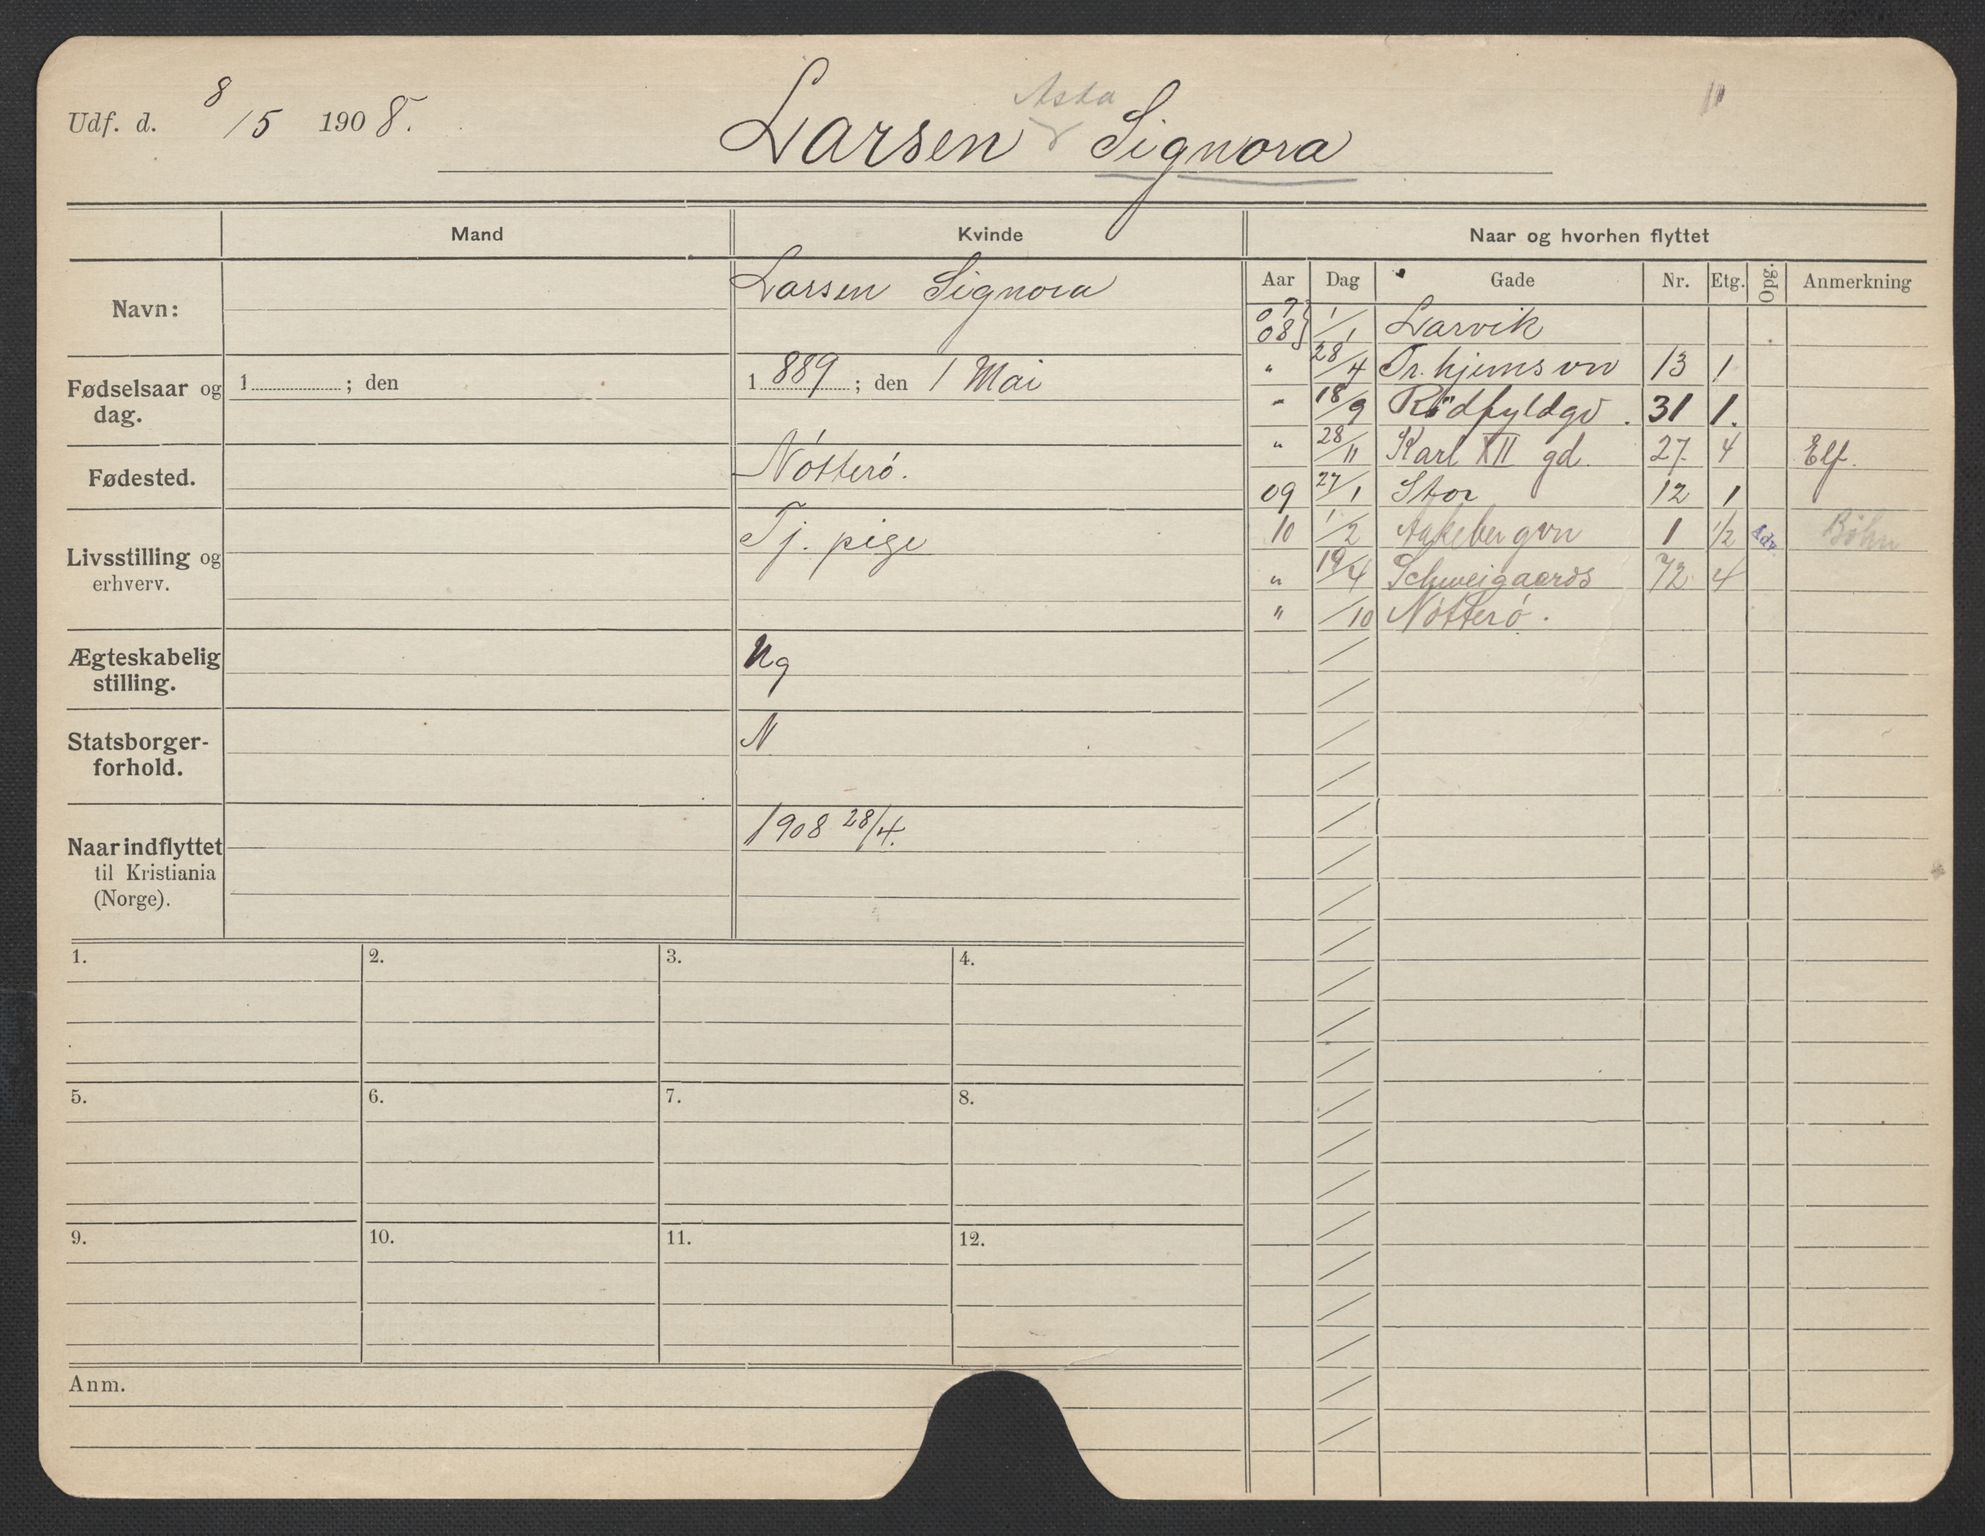 Udf. d. 8/5 1908.
Asta
Larsen Signora
Mand Kvinde Naar og hvorhen flyttet
Aar Dag Gade Nr. Etg. Opg. Anmerkning
Navn: Larsen Signora
Fødselsaar og dag. 1 ; den 1889 ; den 1 Mai
Fødested. Nötterö.
Livsstilling og erhverv. Tj. pige
Ægteskabelig stilling. Ug
Statsborger-forhold. N
Naar indflyttet til Kristiania (Norge). 1908 28/4.
07 08 } 1/1 Larvik
" 28/4 Tr.hjemsvn 13 1
" 18/9 Rödfyldgd. 31 1.
" 28/11 Karl XII gd. 27 4 Elf.
09 27/1 Stor 12 1
10 1/2 Aakebergvn 1 1/2 Adv. Böhn
" 19/4 Schweigaards 72 4
" /10 Nötterö.
1. 2. 3. 4.
5. 6. 7. 8.
9. 10. 11. 12.
Anm.